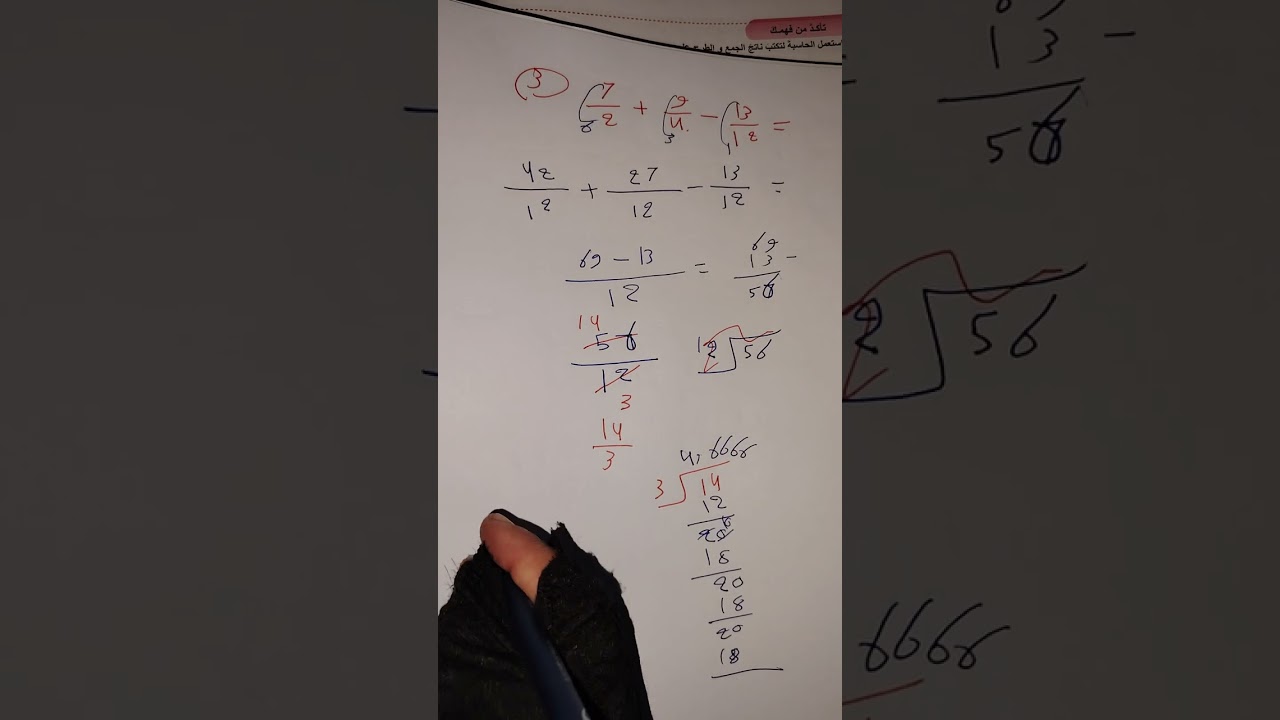 تأكد من فهمك
استعمل الحاسبة لتكتب ناتج الجمع و الطرح
3
7/2 + 9/4 - 13/12 =
6 3 1
42/12 + 27/12 - 13/12 =
69 - 13 / 12 =
69
13 -
56
14
56/12
3
12 56
14/3
4,6666
3 14
12
20
18
20
18
20
18